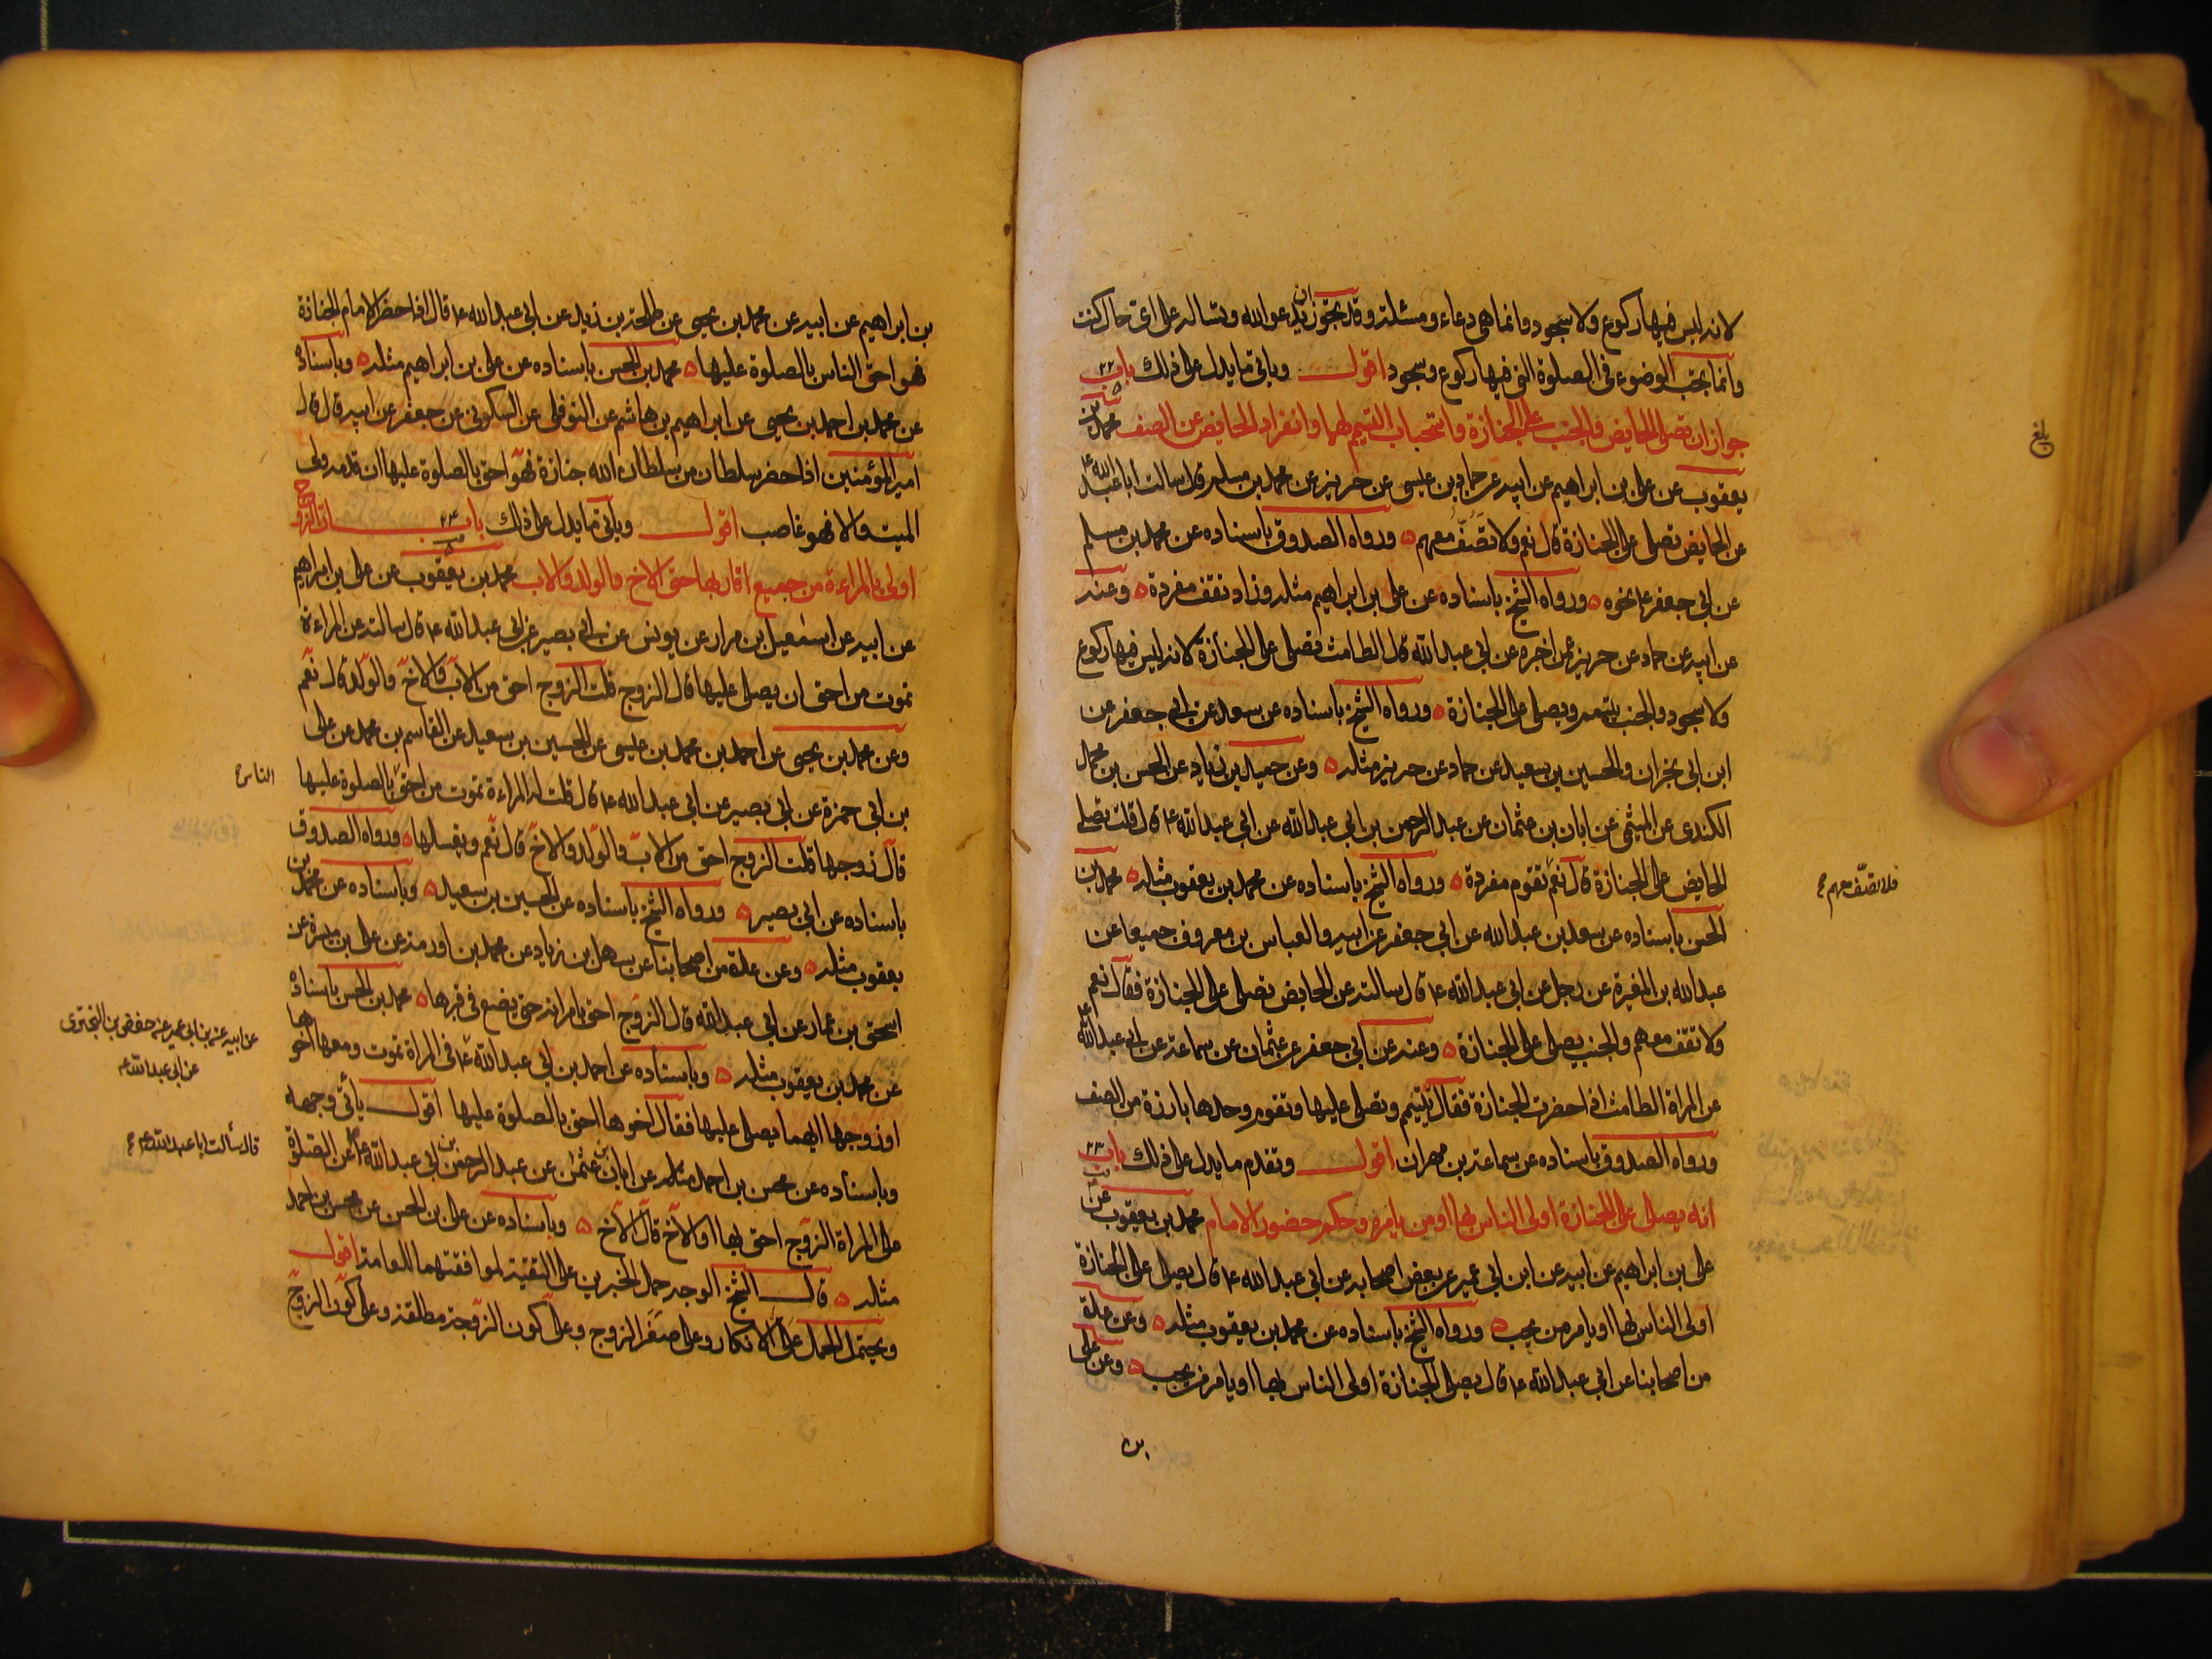 لانه ليس فيها ركوع ولا سجود وانما هى دعاء ومسئلة وقد يجوز ان تدعو الله وتساله على اى حال كنت
وانما يجب الوضوء فى الصلوة التى فيها ركوع وسجود اقول وياتى ما يدل على ذلك باب ٢٢
جواز ان تصلى الحايض والجنب على الجنازة واستحباب التيمم لهما وانفراد الحايض عن الصف محمد بن
يعقوب عن على بن ابراهيم عن ابيه عن حماد بن عيسى عن حريز عن محمد بن مسلم قال سالت ابا عبد الله ع
عن الحايض تصلى على الجنازة قال نعم ولا تصف معهم ورواه الصدوق باسناده عن محمد بن مسلم
عن ابى جعفر ع نحوه ورواه الشيخ باسناده عن على بن ابراهيم مثله وزاد تقف مفردة وعنه
عن ابيه عن حماد عن حريز عمن اخبره عن ابى عبد الله قال الطامث تصلى على الجنازة لانه ليس فيها ركوع
ولا سجود والجنب يتيمم ويصلى على الجنازة ورواه الشيخ باسناده عن سعد عن ابى جعفر عن
ابن ابى نجران والحسين بن سعيد عن حماد عن حريز مثله وعن حميد بن زياد عن الحسن بن محمد
الكندى عن الميثمى عن ابان بن عثمان عن عبد الرحمن بن ابى عبد الله عن ابى عبد الله ع قال قلت تصلى
الحايض على الجنازة قال نعم تقوم مفردة ورواه الشيخ باسناده عن محمد بن يعقوب مثله محمد بن
الحسن باسناده عن سعد بن عبد الله عن ابى جعفر عن ابيه والعباس بن معروف جميعا عن
عبد الله بن المغيرة عن رجل عن ابى عبد الله ع قال سالته عن الحايض تصلى على الجنازة فقال نعم
ولا تقف معهم والجنب يصلى على الجنازة وعنه عن ابى جعفر عن عثمان عن سماعة عن ابى عبد الله ع
عن المراة الطامث اذا حضرت الجنازة فقال تتيمم وتصلى عليها وتقوم وحدها بارزة من الصف
ورواه الصدوق باسناده عن سماعة بن مهران اقول وتقدم ما يدل على ذلك باب ٢٣
انه يصلى على الجنازة اولى الناس بها او من يامره وحكم حضور الامام محمد بن يعقوب عن
على بن ابراهيم عن ابيه عن ابن ابى عمير عن بعض اصحابه عن ابى عبد الله ع قال يصلى على الجنازة
اولى الناس بها او يامر من يحب ورواه الشيخ باسناده عن محمد بن يعقوب مثله وعن عدة
من اصحابنا عن ابى عبد الله ع قال يصلى الجنازة اولى الناس بها او يامر من يحب وعن على
بن
بلغ
فلا تصف معهم
بن ابراهيم عن ابيه عن محمد بن يحيى عن طلحة بن زيد عن ابى عبد الله ع قال اذا حضر الامام الجنازة
فهو احق الناس بالصلوة عليها محمد بن الحسن باسناده عن على بن ابراهيم مثله وباسناده
عن محمد بن احمد بن يحيى عن ابراهيم بن هاشم عن النوفلى عن السكونى عن جعفر عن ابيه قال قال
امير المؤمنين اذا حضر سلطان من سلطان الله جنازة فهو احق بالصلوة عليها ان قدمه ولى
الميت والا فهو غاصب اقول وياتى ما يدل على ذلك باب ٢٤ ان الزوج
اولى بالمراءة من جميع اقاربها حتى الاخ والولد والاب محمد بن يعقوب عن على بن ابراهيم
عن ابيه عن اسمعيل بن مرار عن يونس عن ابى بصير عن ابى عبد الله ع قال سالته عن المراءة
تموت من احق ان يصلى عليها قال الزوج قلت الزوج احق من الاب والاخ والولد قال نعم
وعن محمد بن يحيى عن احمد بن محمد بن عيسى عن الحسين بن سعيد عن القاسم بن محمد عن على
بن ابى حمزة عن ابى بصير عن ابى عبد الله ع قال قلت له المراءة تموت من احق بالصلوة عليها
قال زوجها قلت الزوج احق من الاب والولد والاخ قال نعم ويغسلها ورواه الصدوق
باسناده عن ابى بصير ورواه الشيخ باسناده عن الحسين بن سعيد وباسناده عن محمد بن
يعقوب مثله وعن عدة من اصحابنا عن سهل بن زياد عن محمد بن اورمة عن على بن ميسرة عن
اسحق بن عمار عن ابى عبد الله قال الزوج احق بامراته حتى يضع فى قبرها محمد بن الحسن باسناده
عن محمد بن يعقوب مثله وباسناده عن احمد بن ابى عبد الله ع فى المراة تموت ومعها اخوها
او زوجها ايهما يصلى عليها فقال اخوها احق بالصلوة عليها اقول ياتى وجهه
وباسناده عن محسن بن احمد مثله عن ابان بن عثمن عن عبد الرحمن بن ابى عبد الله ع عن الصلوة
على المراة الزوج احق بها او الاخ قال الاخ وباسناده عن على بن الحسن عن محسن بن احمد
مثله قال الشيخ الوجه حمل الخبرين على التقية لموافقتهما للعامة اقول
ويحتمل الحمل على الانكار وعلى صغر الزوج وعلى كون الزوجة مطلقة وعلى كون الزوج
الناس
عن ابيه عن بن ابى عمير عن حفص بن البخترى
عن ابى عبد الله ع
قال سألت ابا عبد الله ع